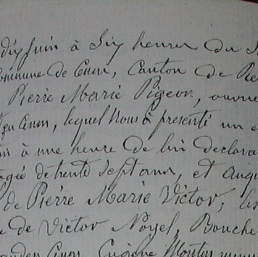 dix juin à six heures du S
Commune de Cenon, Canton de
Pierre Marie Pigeon, ouvrier
Cenon, lequel Nous à présenté un e
à une heure de lui déclara
agée de trente Sept ans, et auq
de Pierre Marie Victor, les
de Victor Noyel, Bouche
Cenon